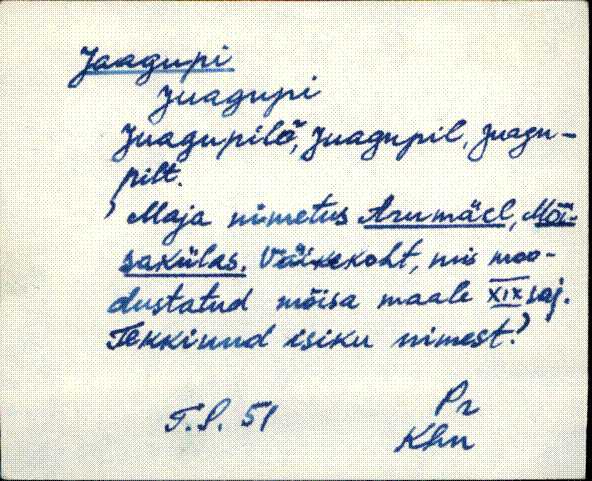 Jaagupi
Juagupi
Juagupilõ, Juagupil, Juagu-
pilt.
) Maja nimetus Arumäel, Mõi-
sakülas. Väikekoht, mis moo-
dustatud mõisa maale XIX saj.
Tekkinud isiku nimest.)
T.S. 51 Pr
Khn